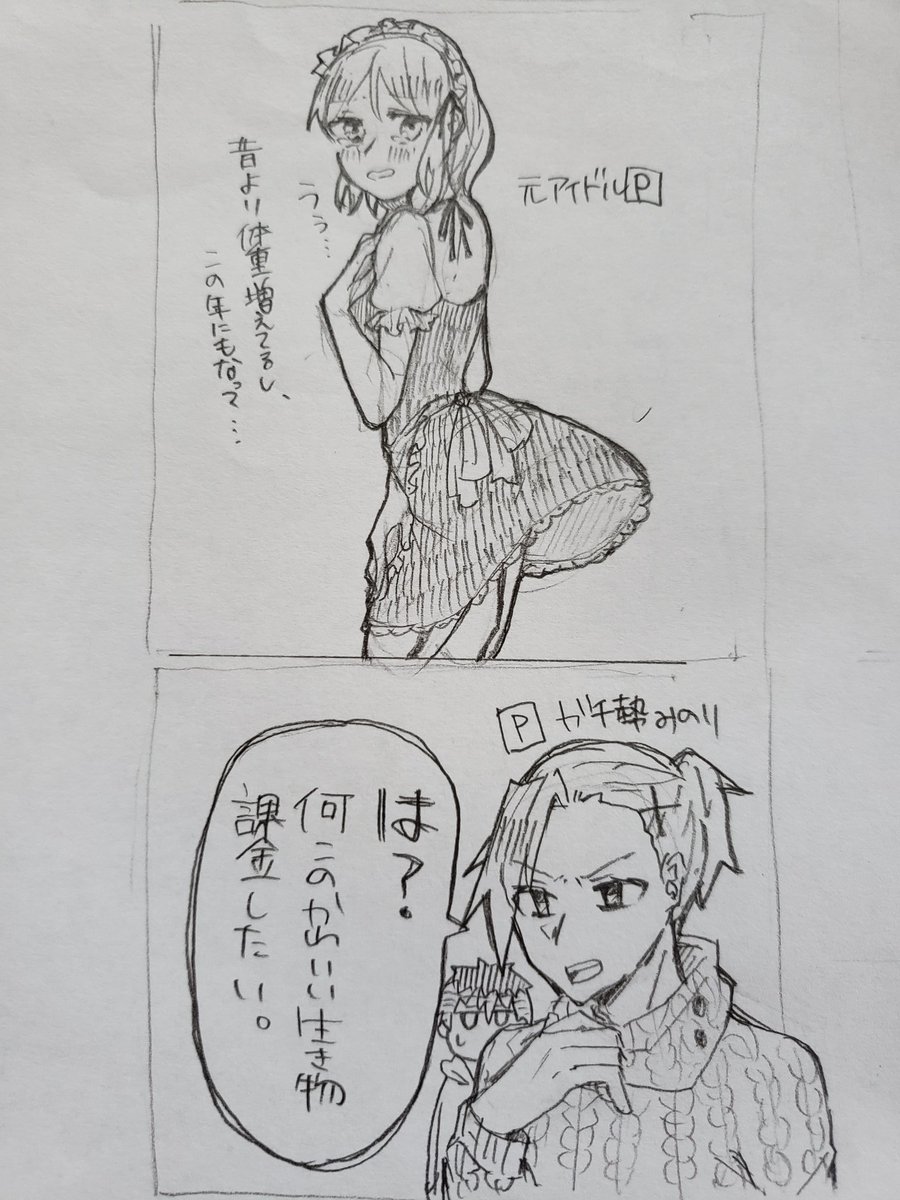 元アイドルP
うぅ…
昔より体重増えてるし、
この年にもなって…
P ガチ勢みのり
は？
何このかわいい生き物
課金したい。